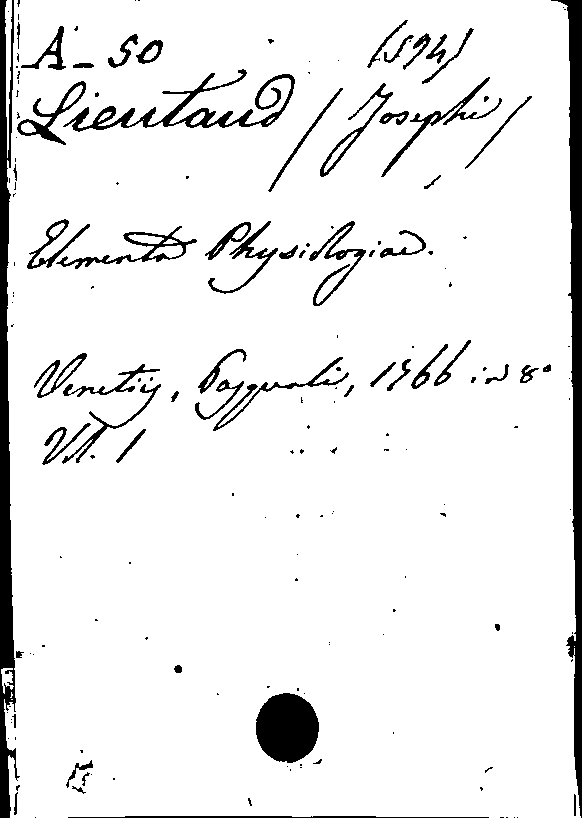 A_ 50 (594)
Lieutaud (Josephi)
Elementa Physiologiae.
Venetiis, Pasquali, 1766 in 8º
Vol. 1